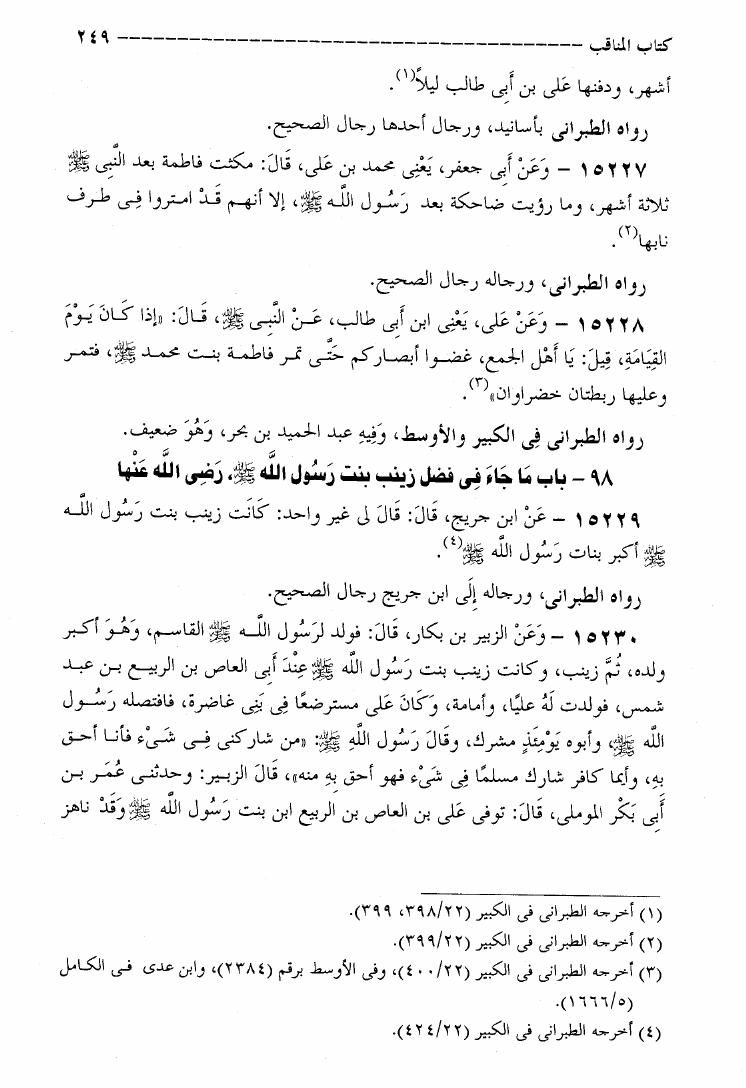 كتاب المناقب ــــــــــــــــــــــــــــــــــــــــــــــــــــــــــــــــ ٢٤٩
أشهر، ودفنها عَلى بن أَبِى طالب ليلاً(١).
رواه الطبرانى بأسانيد، ورجال أحدها رجال الصحيح.
١٥٢٢٧ – وَعَنْ أَبِى جعفر، يَعْنِى محمد بن على، قَالَ: مكثت فاطمة بعد النَّبِى ﷺ
ثلاثة أشهر، وما رؤيت ضاحكة بعد رَسُول اللـه ﷺ، إلا أنهـم قَـدْ امتروا فِـى طـرف
نابها(٢).
رواه الطبرانى، ورجاله رجال الصحيح.
١٥٢٢٨ – وَعَنْ على، يَعْنِى ابن أَبِى طالب، عَـنْ النَّبِـى ﷺ، قَـالَ: «إذا كَـانَ يَـوْمَ
القِيَامَةِ، قِيلَ: يَا أَهْل الجمع، غضـوا أبصـاركم حَتَّـى تمر فاطمـة بنـت محمـد ﷺ، فتمـر
وعليها ربطتان خضراوان»(٣).
رواه الطبرانى فِى الكبير والأوسط، وَفِيهِ عبد الحميد بن بحر، وَهُوَ ضعيف.
٩٨ – باب مَا جَاءَ فِى فضل زينب بنت رَسُول اللَّه ﷺ، رَضِى اللَّه عَنْها
١٥٢٢٩ – عَنْ ابن جريج، قَالَ: قَالَ لى غير واحد: كَانَت زينب بنت رَسُول اللَّـه
ﷺ أكبر بنات رَسُول اللَّه ﷺ(٤).
رواه الطبرانى، ورجاله إلَى ابن جريج رجال الصحيح.
١٥٢٣٠ – وَعَنْ الزبير بن بكار، قَالَ: فولد لرَسُول اللَّـه ﷺ القاسم، وَهُـوَ أكبر
ولده، ثُمَّ زينب، وكانت زينب بنت رَسُول اللَّه ﷺ عِنْدَ أَبِى العاص بن الربيـع بـن عبـد
شمس، فولدت لَهُ عليًا، وأمامة، وَكَانَ عَلى مسترضعًا فِى بَنِى غاضرة، فافتصله رَسُـول
اللَّه ﷺ، وأبوه يَوْمَئَذٍ مشرك، وقَالَ رَسُول اللَّهِ ﷺ: «من شاركنى فِـى شَـىْء فأنـا أحـق
بِهِ، وأيما كافر شارك مسلمًا فِى شَىْء فهو أحق بِهِ منه»، قَالَ الزبير: وحدثنى عُمَـر بـن
أَبِى بَكْر الموملى، قَالَ: توفى عَلى بن العاص بن الربيع ابن بنت رَسُول اللَّه ﷺ وَقَدْ ناهز
(١) أخرجه الطبرانى فى الكبير (٣٩٨/٢٢، ٣٩٩).
(٢) أخرجه الطبرانى فى الكبير (٣٩٩/٢٢).
(٣) أخرجه الطبرانى فى الكبير (٤٠٠/٢٢)، وفى الأوسط برقم (٢٣٨٤)، وابن عدى فـى الكـامل
(١٦٦٦/٥).
(٤) أخرجه الطبرانى فى الكبير (٤٢٤/٢٢).